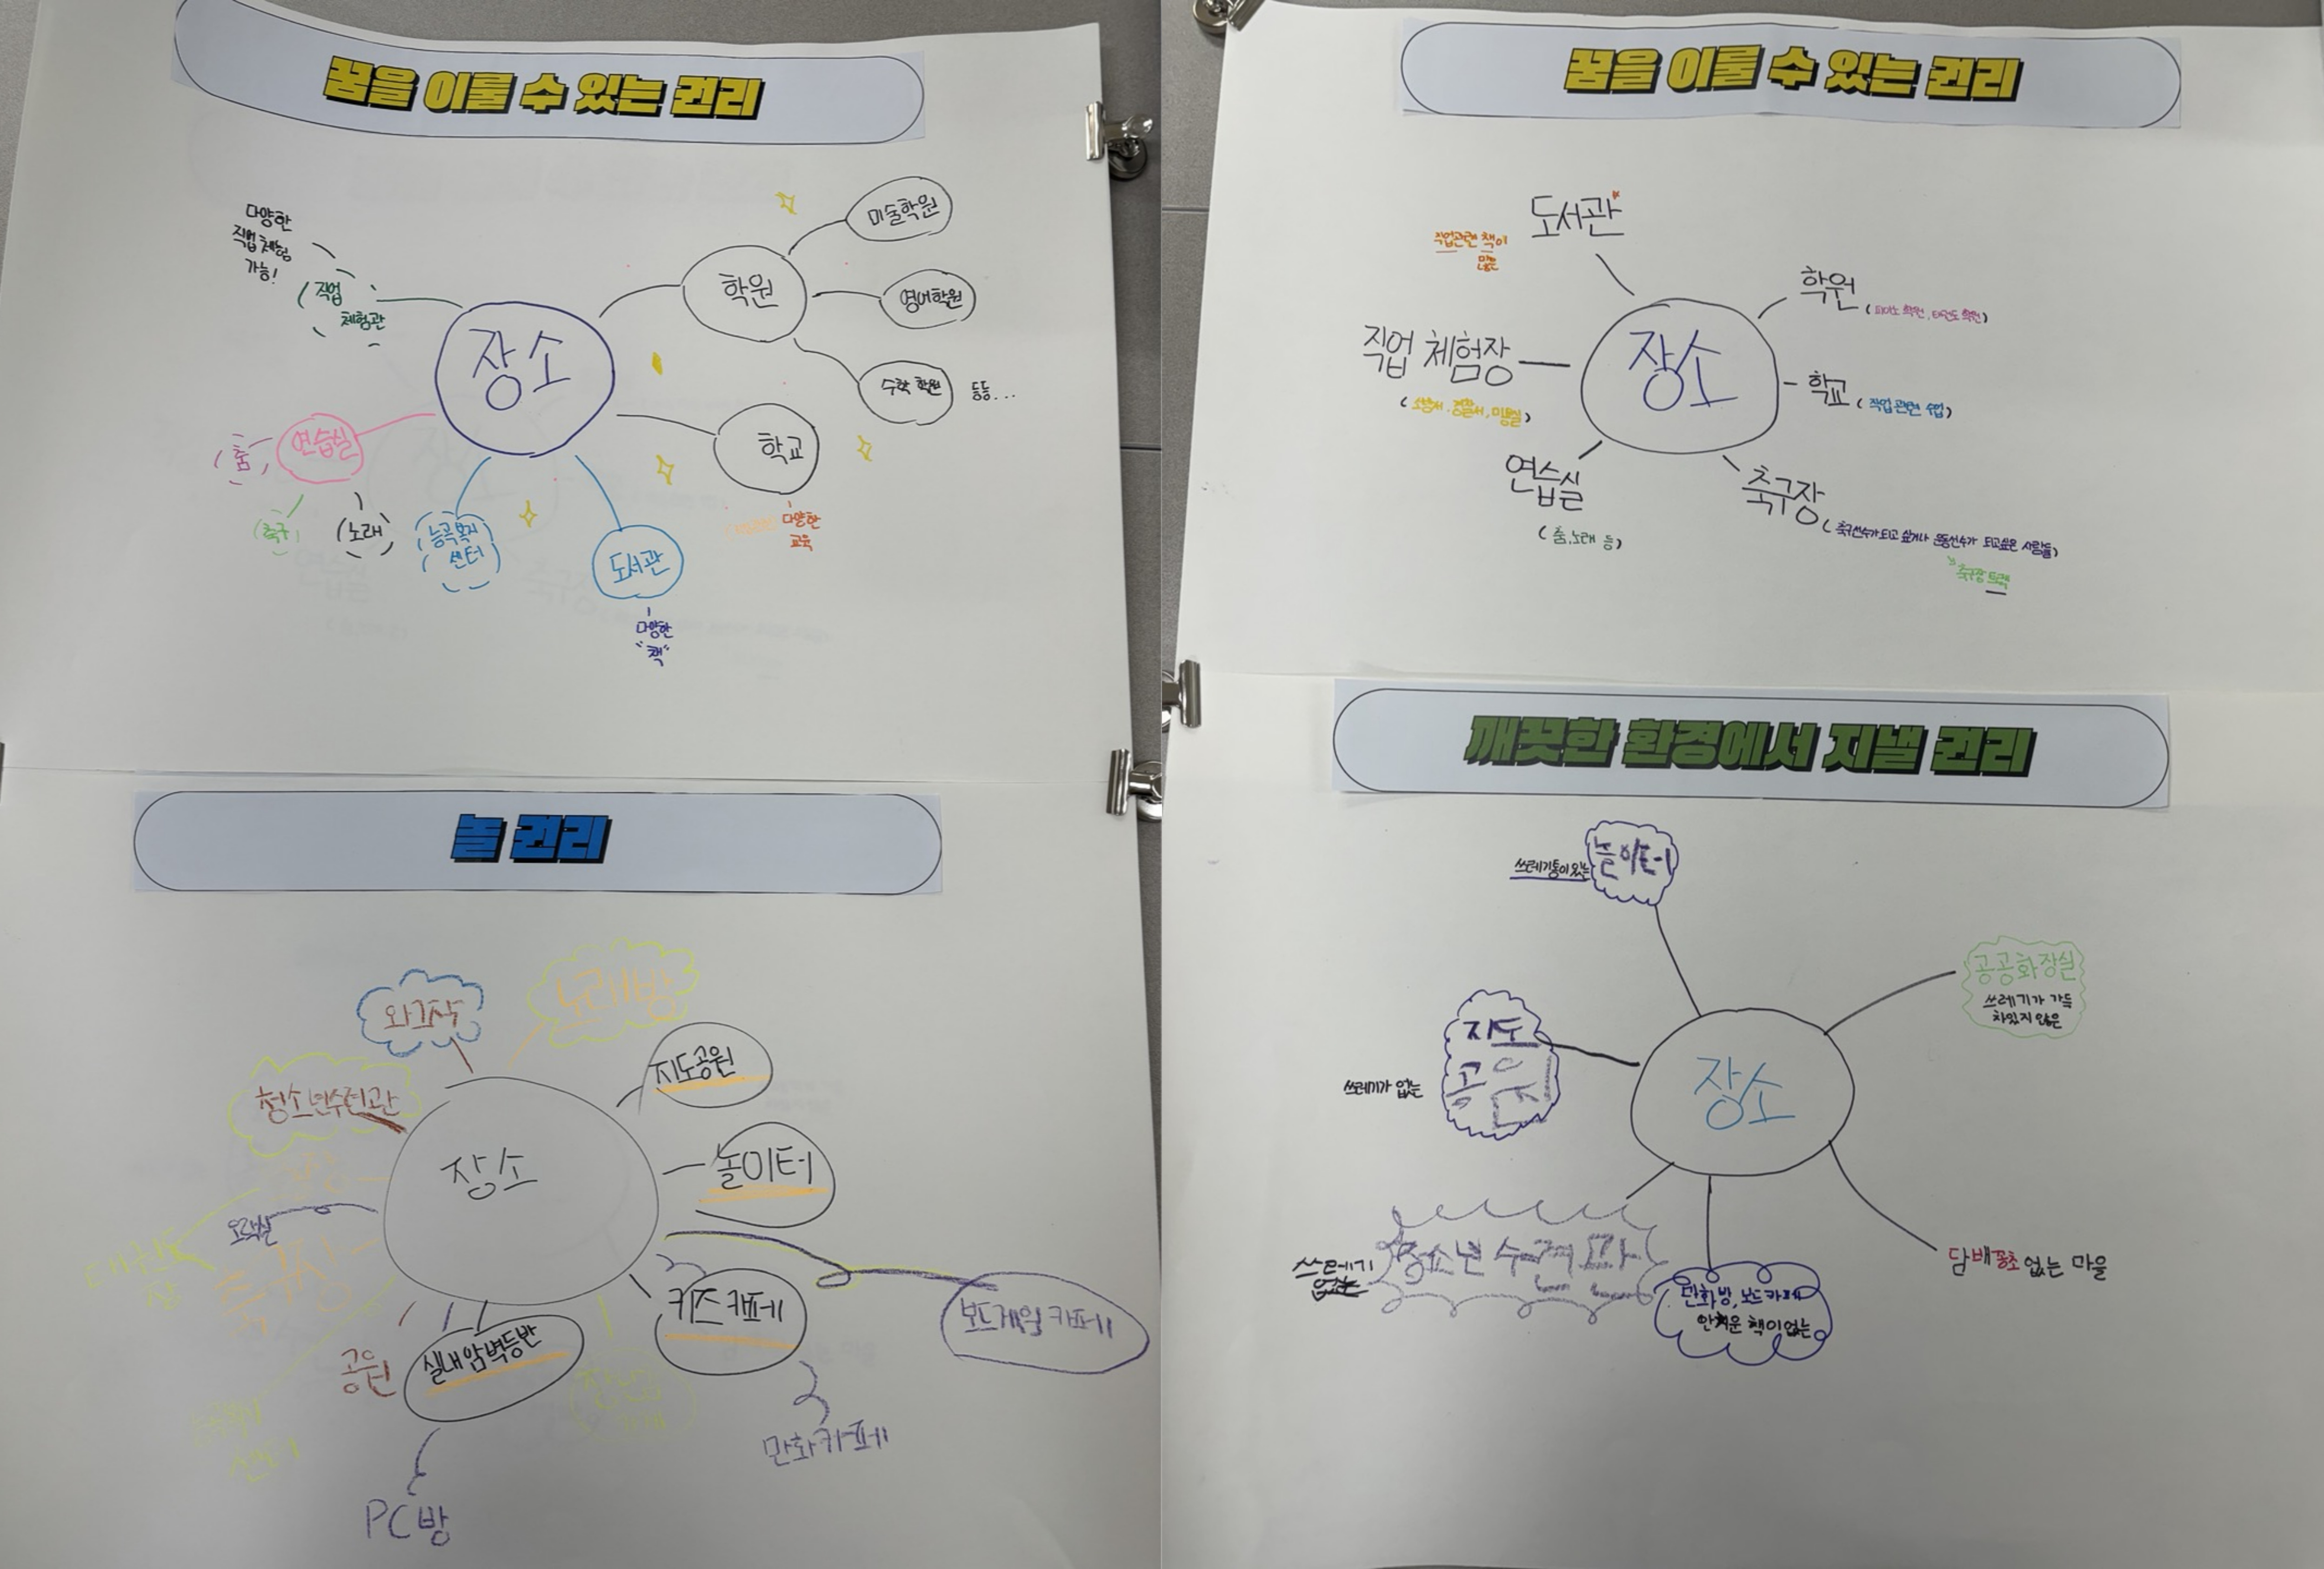 꿈을 이룰 수 있는 권리
다양한
직업 체험
가능!
직업
체험관
장소
학원
미술학원
영어학원
수학 학원
등등...
학교
다양한
교육
연습실
(춤)
(축구)
(노래)
능곡복지
센터
도서관
다양한
"책"
꿈을 이룰 수 있는 권리
도서관
직업관련 책이
많은
학원
(피아노 학원, 태권도 학원)
직업 체험장
(소방서, 경찰서, 미용실)
장소
학교 (직업 관련 수업)
연습실
(춤, 노래 등)
축구장
(축구선수가 되고 싶거나 운동선수가 되고싶은 사람들)
축구장 트랙
놀 권리
와그작
노래방
지도공원
청소년수련관
장소
놀이터
오락실
축구장
키즈 카페
보드게임 카페
공원
실내 암벽등반
만화카페
PC방
깨끗한 환경에서 지낼 권리
쓰레기통이 있는
놀이터
공공화장실
쓰레기가 가득
차있지 않은
지도
공원
쓰레기가 없는
장소
쓰레기
없는
청소년 수련관
만화방, 보드카페
안 찢어진 책이 없는
담배꽁초 없는 마을